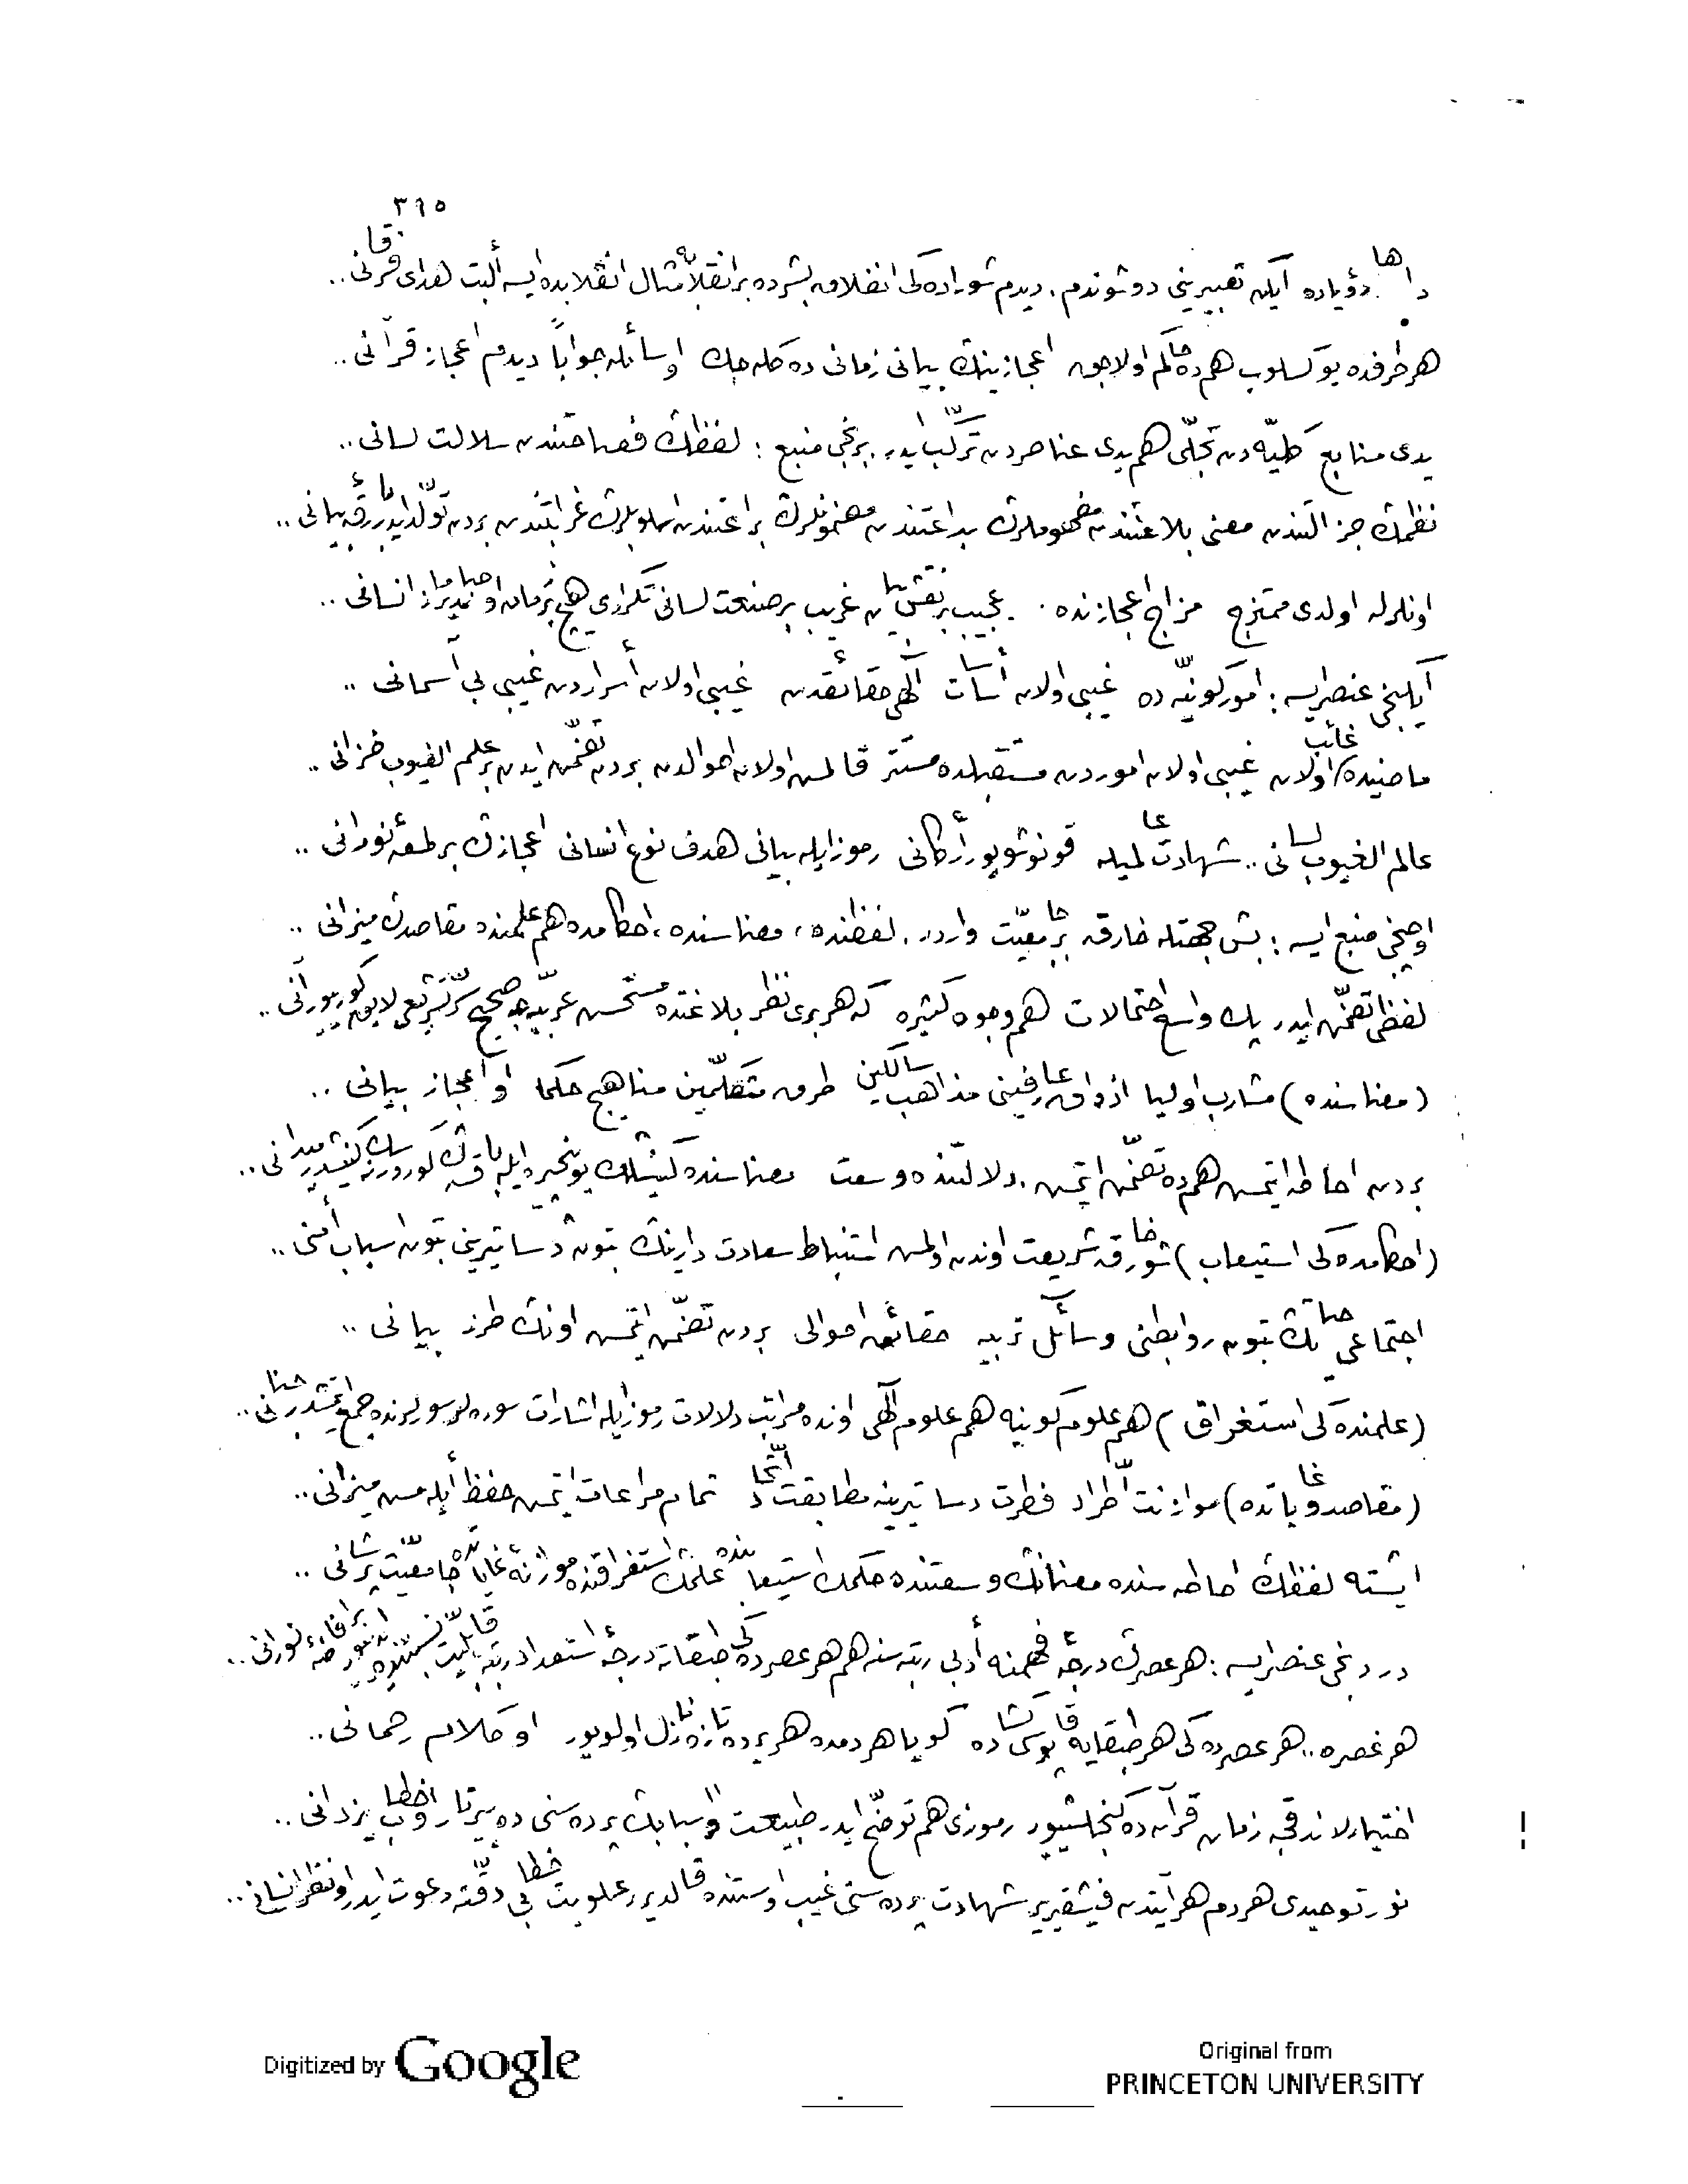 ٣١٥
داها رؤیاده ایکن تعبیرینی دوشوندم. دیدم شوراده کی انفلاق بشرده بر انقلابه مثال انقلابده ایسه ألبت هدای فرقانی..
هر طرفده یوکسلوب هم ده حاکم اولاجق اعجازینك بیانی زمانی ده کله جك او سائله جواباً دیدم اعجاز قرآنی..
یدی منابع کلیّه دن تجلّی هم یدی عناصردن ترکّب ایدر. برنجی منبع : لفظك فصاحتندن سلالت لسانی..
نظمك جزالتندن معنی بلاغتندن مفهوملرك بداعتندن مضمونلرك براعتندن اسلوبلرك غرابتندن بردن تولّد ایدر بارقهٔ بیانی..
اونلرله اولدی ممتزج مزاج اعجازنده. عجیب بر نقش بیان غریب بر صنعت لسانی تکراری هیچ بر زمان اوصاندیرماز انسانی..
ایکنجی عنصر ایسه : امور کونیّه ده غیبی اولان أساسات آلٓهی حقائقدن غیبی اولان أسراردن غیبی بی آسمانی..
ماضیده غائب اولان غیبی اولان اموردن مستقبلده مستتر قالمس اولان احوالدن بردن تضمّن ایدن بر علم الغیوب خزانی..
عالم الغیوب لسانی.. شهادت عالمیله قونوشویور أرکانی رموز ایله بیانی هدف نوع انسانی اعجازك بر لمعهٔ نورانی..
اوچنجی منبع ایسه : بش جهتله خارقه بر جامعیّت واردر. لفظنده، معناسنده، احکامده هم علمنده مقاصدك میزانی..
لفظی تضمّن ایدر پك واسع احتمالات هم وجوه کثیره که هر بری نظر بلاغتده مستحسن عربیّه جه صحیح سرّ تشریعی لایق کورییور آنی..
(معناسنده) مشارب اولیا اذواق عارفینی مذاهب سالکین طرق متکلّمین مناهج حکما او اعجاز بیانی..
بردن احاطه ایتمس هم ده تضمّن ایتمس. دلالتنده وسعت معناسنده کنیشلك بو پنجره ایله باقسه ك کورورسك نه کنیشدر میدانی..
(احکامده کی استیعاب) شو خارقه شریعت اوندن اولمس استنباط سعادت دارینك بتون دساتیرینی بتون اسباب أمنی..
اجتماعی حیاتك بتون روابطنی وسائل تربیه حقائق احوالی بردن تضمّن ایتمس اونك طرز بیانی..
(علمنده کی استغراق) هم علوم کونیه هم علوم آلٓهی اونده مراتب دلالات رموز ایله اشارات سوره لر سورلرنده جمع ایتمشدر جنانی..
(مقاصد و غایاتده) موازنت اطّراد فطرت دساتیرینه مطابقت اتّحاد تمام مراعات ایتمس حفظ أیله مس میزانی..
ایشته لفظك احاطه سنده معنانك وسعتنده حکمك استیعابنده علمك استغراقنده موازنهٔ غایاتده جامعیّت پرشانی..
دردنجی عنصر ایسه : هر عصرك درجهٔ فهمنه أدبی رتبه سنه هم هر عصرده کی طبقاته درجهٔ استعداد رتبهٔ قابلیّت نسبتنده ایدییور بر افاضهٔ نورانی..
هر عصره.. هر عصرده کی هر طبقایه قاپوسی کشاده کویا هر دمده هر یرده تازه نازل اولویور او کلام رحمانی..
اختیارلاندقجه زمان قرآن ده کنجلشییور رموزی هم توضّح ایدر طبیعت و اسبابك پرده سنی ده ییرتار او خطاب یزدانی..
نور توحیدی هر دم هر آیتدن فیشقیریر شهادت پرده سنی غیب اوستنده قالدیریر علویت خطابی دقّته دعوت ایدر او نظر انسانی..
Digitized by Google
Original from
PRINCETON UNIVERSITY